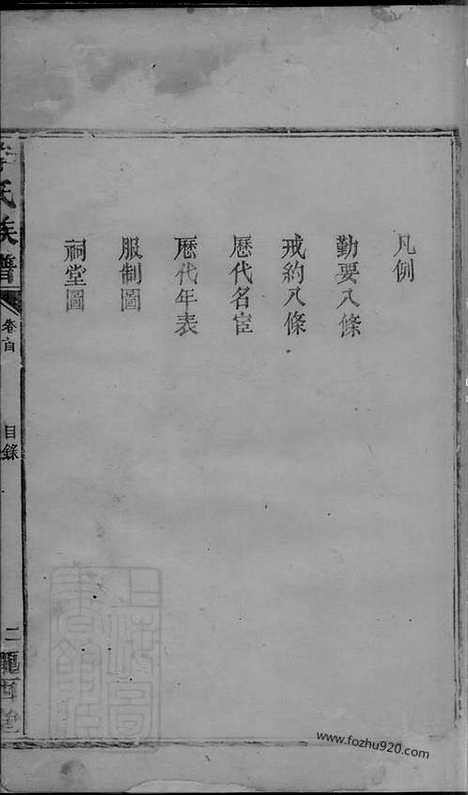 凡例
勤要八條
戒約八條
歷代名宦
歷代年表
服制圖
祠堂圖
氏族譜
卷首
目錄
二
www.fozhu920.com